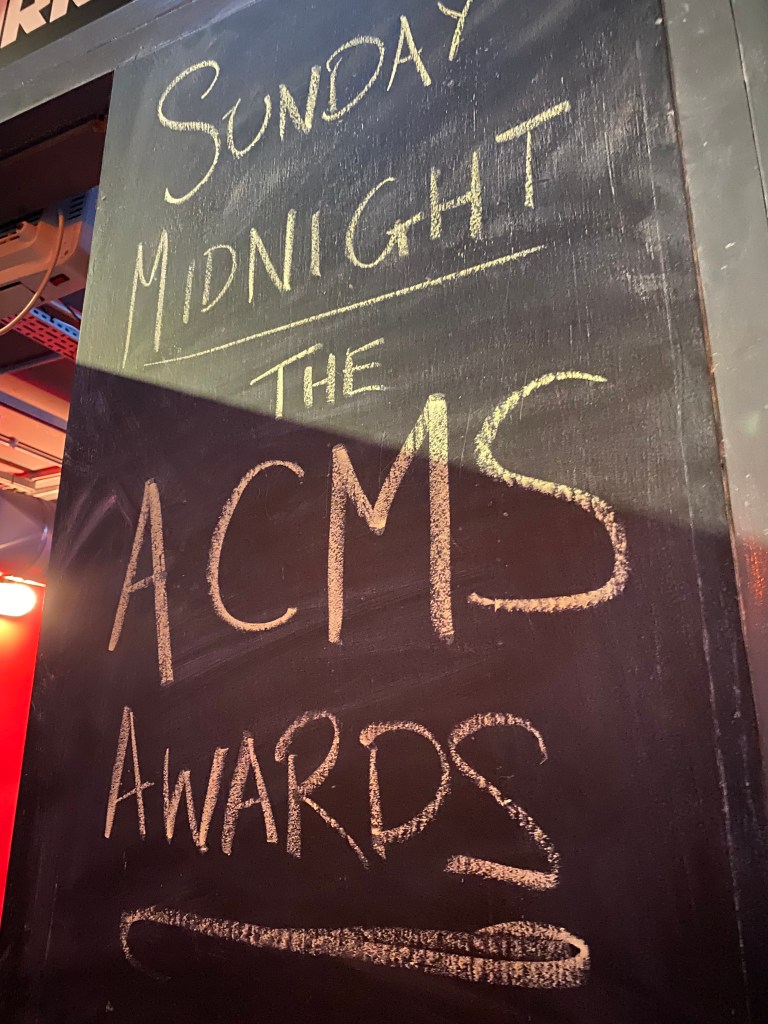 SUNDAY
MIDNIGHT
THE
ACMS
AWARDS